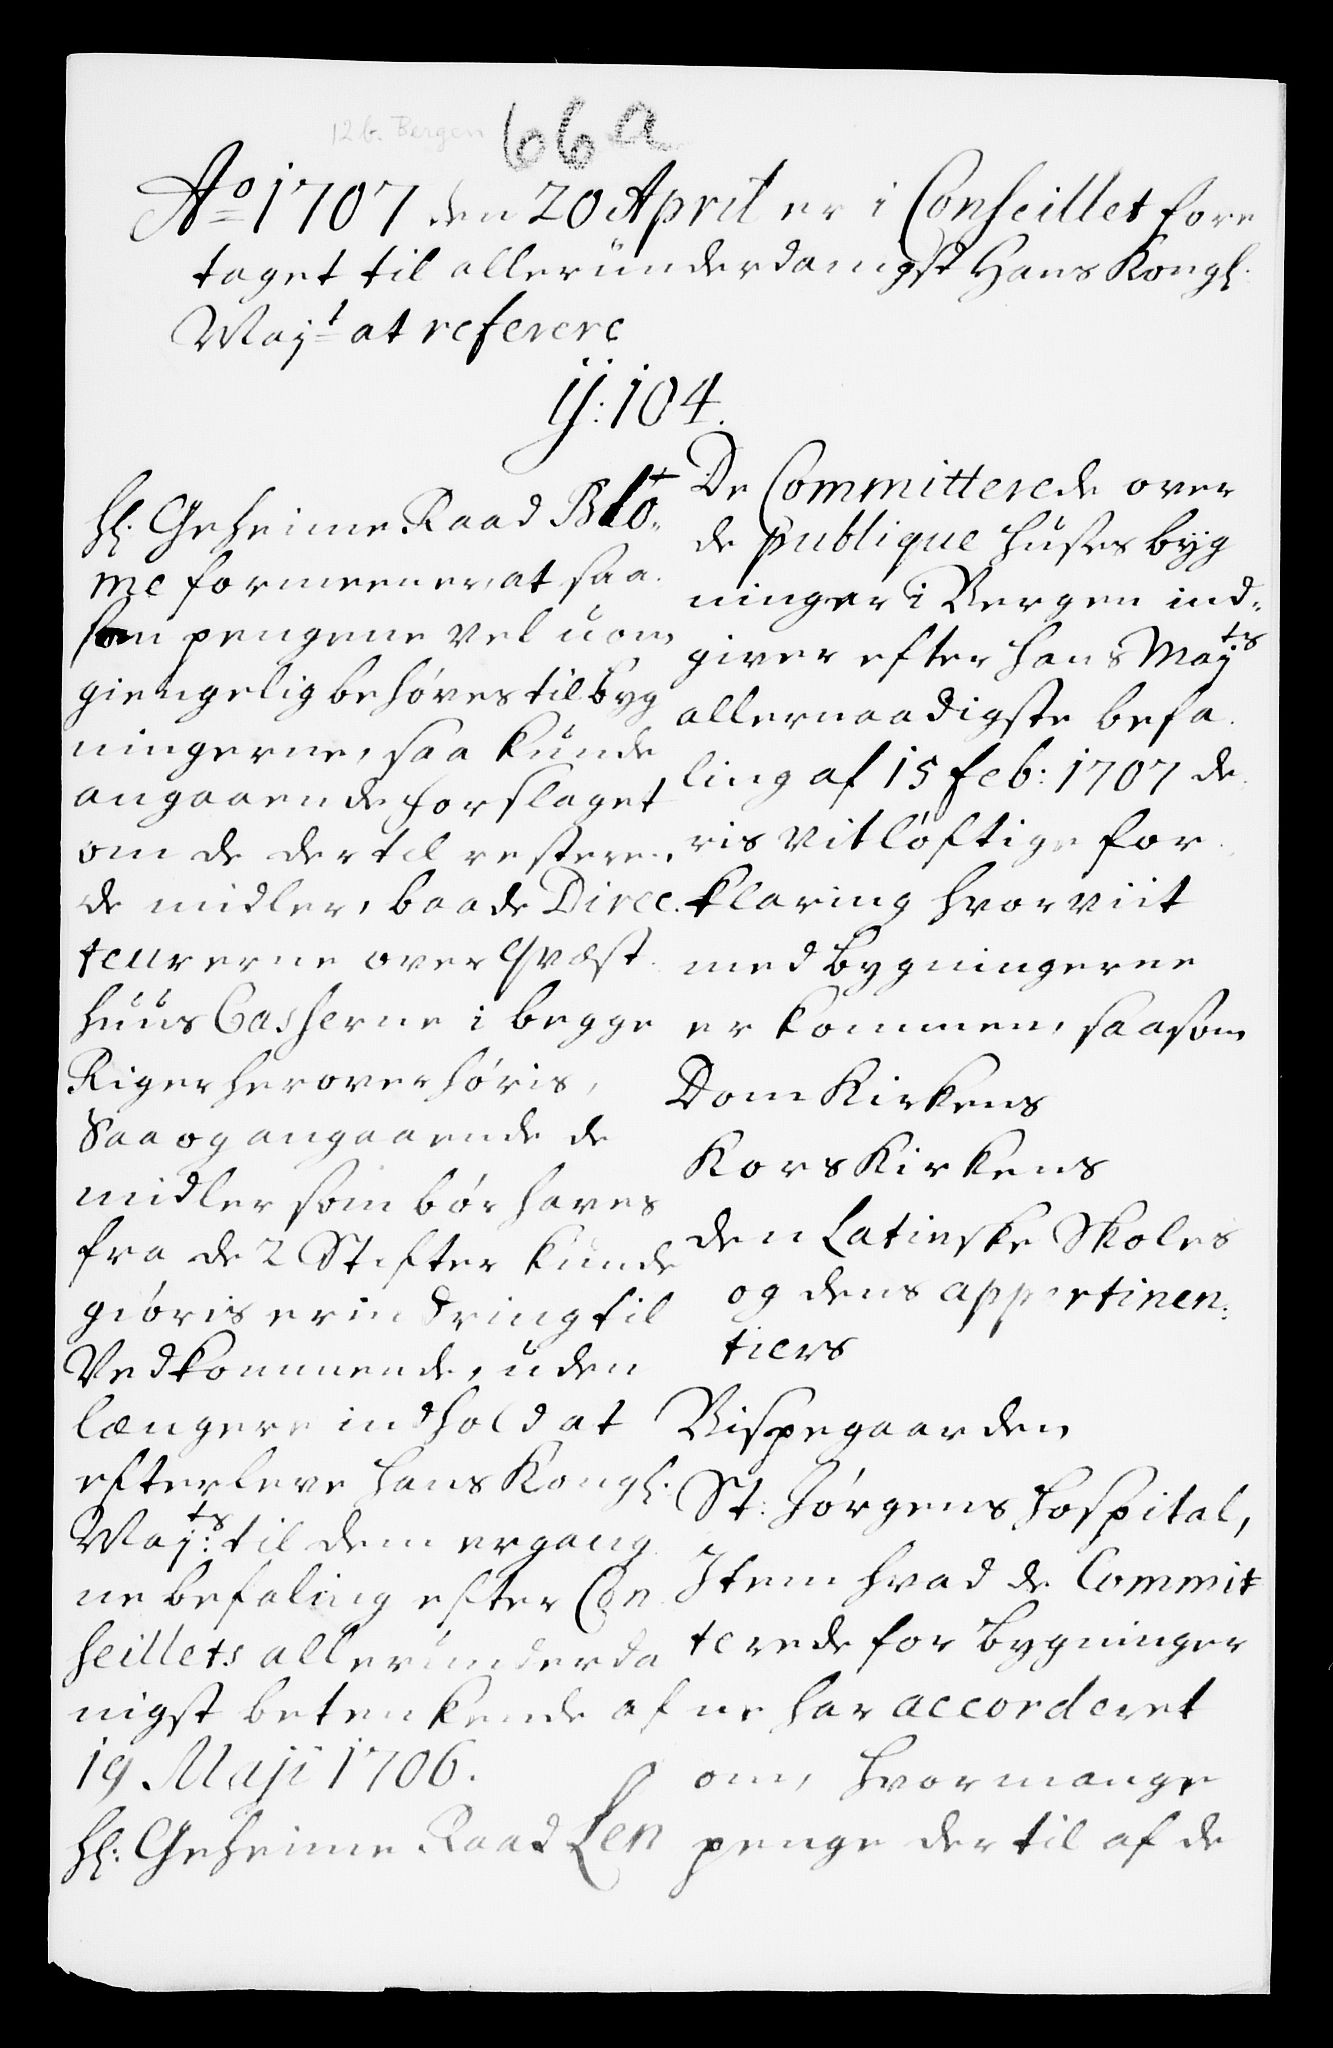 12 b. Bergen
66 a
Ao 1707 den 20 April er i Conseillet fore
taget til alleründerdanigst Hans Kongl:
Mayt at referere
ij: 104.
Hl: Geheime Raad Blo-
me formeener, at saa
som pengene vel uom
giengelig behøves til byg
ningerne, saa kunde
angaaende forslaget
om de dertil resteren
de midler, baade Direc
teurerne over Qvæst
huus Casserne i begge
Riger herover høris,
Saa og angaaende de
midler som bør haves
fra de 2 Stifter kunde
giøris erindring til
Vedkommende, uden
længere indhold at
efterleve Hans Kongl:
Mayts: til dem ergang
ne befaling efter Con
seillets alleründerda
nigst betenkende af
19 Maji 1706.
Hl: Geheime Raad Len
De Committerede over
de publique Huses byg
ninger i Bergen ind-
giver efter Hans Mayts
allernaadigste befa
ling af 15 Feb: 1707 de
ris vitløftige for
klaring hvorviit
med bygningerne
er kommen, saasom
Dom Kirkens
Kors Kirkens
den Latinske Skoles
og dens appertinen:
tiers
Bispegaarden
St: Jørgens Hospital,
Item hvad de Commit
terede for bygninger
ne har accorderet
om, hvormange
penge dertil af de